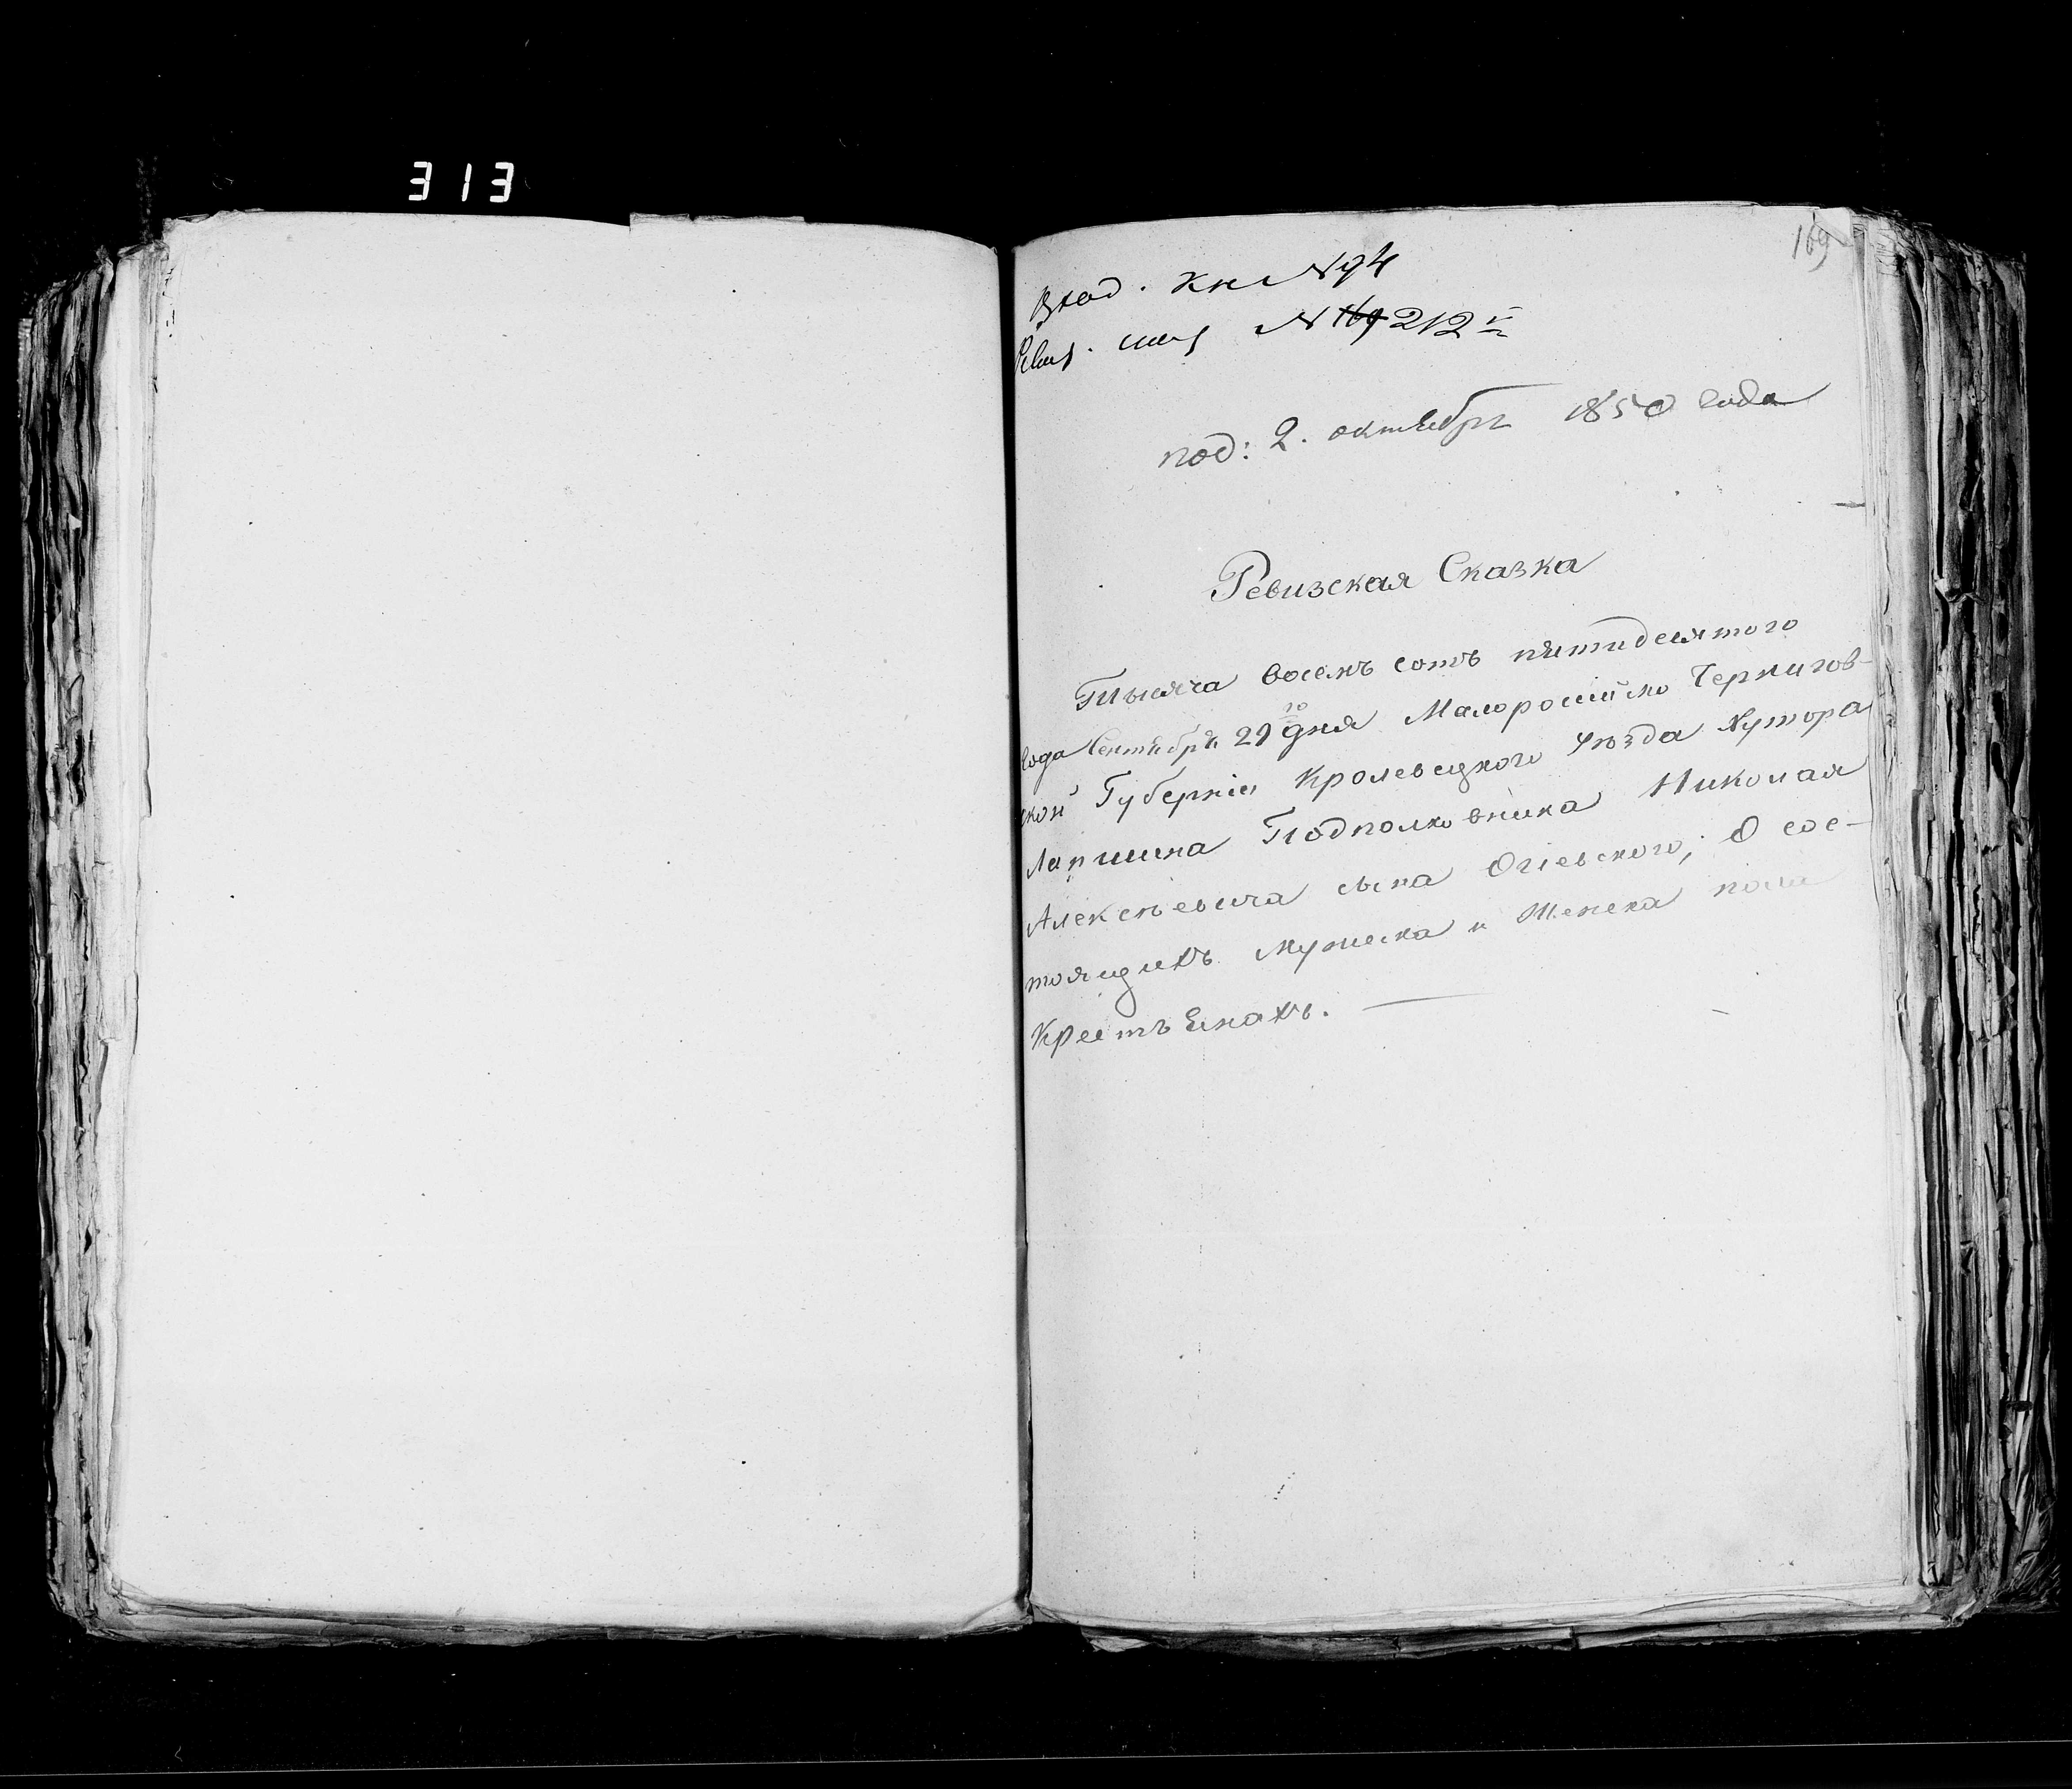 313
169
Вход. Кн №94
Ревиз. № 169 212
под: 2. октября 1850 года
Ревизская Сказка
Тысяча восемь сотъ пятидесятого
года Сентября 29 го дня Малоросійско Чернигов-
ской Губерніи Кролевецкого уѣзда Хутора
Лапшина Подполковника Николая
Алексѣевича сына Огіевского; О сос-
тоящихъ Мужеска и Женска пола
Крестьянахъ.